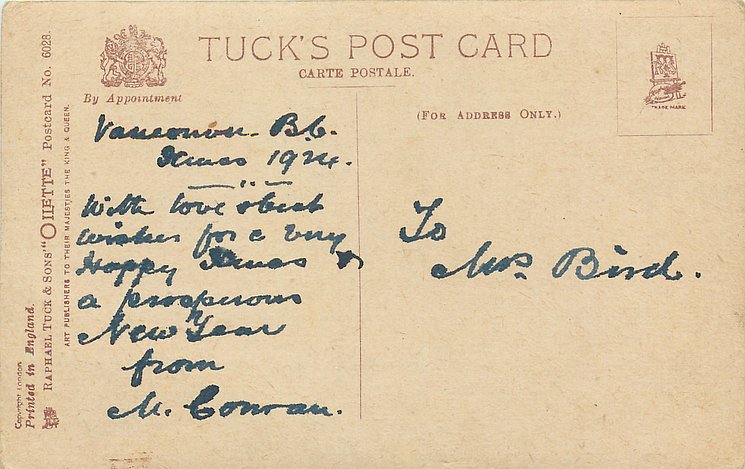 TUCK'S POST CARD
CARTE POSTALE.
By Appointment
(FOR ADDRESS ONLY.)
TRADE MARK
Vancouver B.C.
Xmas 1924.
With love & best
wishes for a very
Happy Xmas &
a prosperous
New Year
from
M. Conran.
To
Mrs Bird.
Copyright London
Printed in England.
RAPHAEL TUCK & SONS' "OILETTE" Postcard No. 6028.
ART PUBLISHERS TO THEIR MAJESTIES THE KING & QUEEN.